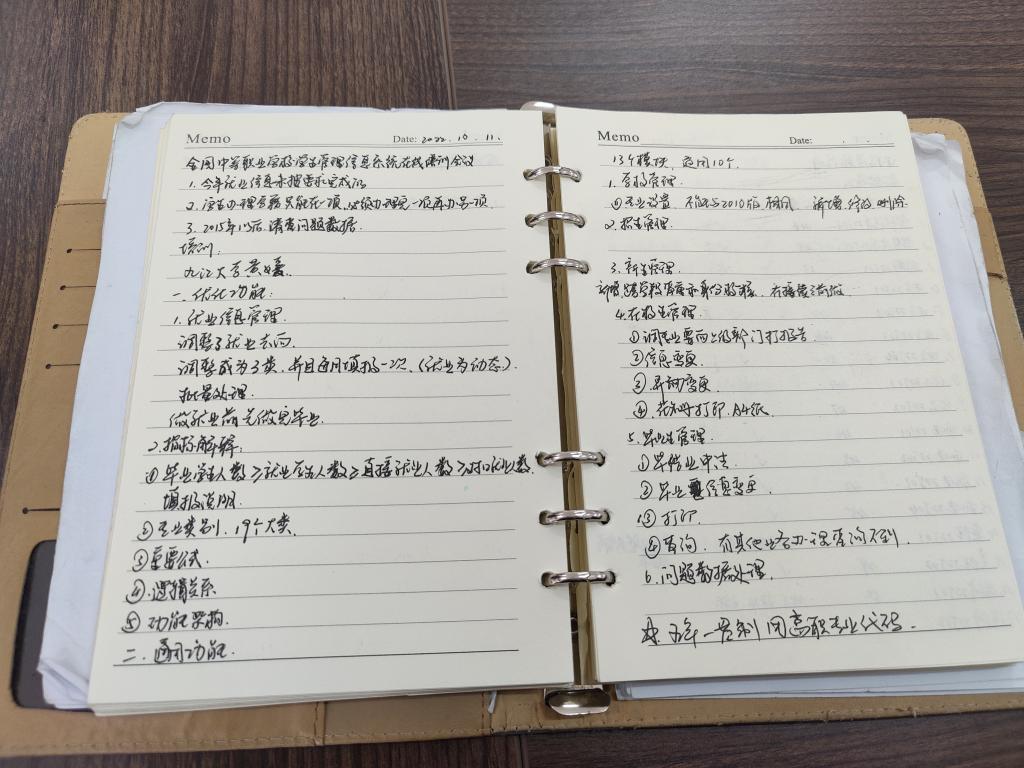 Memo Date: 2022.10.11.
全国中等职业学校学生管理信息系统在线培训会议
1.今年就业信息未按要求完成的
2.学生办理学籍只能在一项,必须办理完一项再办另一项.
3.2015年以后.清查问题数据.
培训:
九江大学黄媛.
一.优化功能:
1.就业信息管理.
调整了就业去向.
调整成为3类,并且每月填报一次.(就业为动态).
批量处理.
做就业前先做完毕业.
2.指标解释:
①毕业学生人数≥就业学生人数≥直接就业人数≥对口就业人数.
填报说明.
②专业类别.19个大类.
③重要公式.
④逻辑关系
⑤功能架构.
二.通用功能.
Memo Date: . .
13个模块,通用10个.
1.学校管理.
①专业设置. 不能与2010版相同. 新增.修改.删除
2.招生管理.
3.新生管理.
4.在校生管理.
①调专业要向上级部门打报告
②信息变更.
③异动变更.
④花名册打印.A4纸.
5.毕业生管理.
①毕结业申请.
②毕业信息变更.
③打印.
④查询.有其他业务办理查询不到.
6.问题数据处理.
☆五年一贯制用高职专业代码.